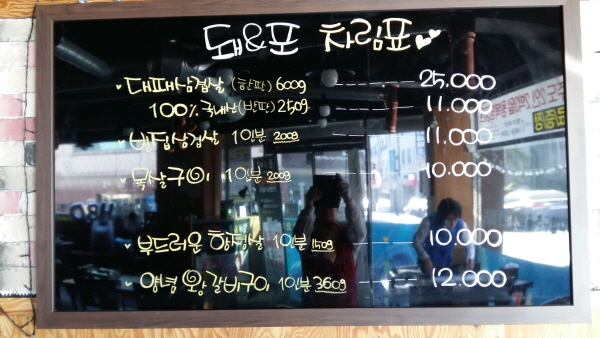 돼&포 차림표
대패삼겹살 (한판) 600g 25.000
100% 국내산 (반판) 250g 11.000
벌집삼겹살 1인분 200g 11.000
목살구이 1인분 200g 10.000
부드러운 항정살 1인분 150g 10.000
양념 왕갈비구이 1인분 360g 12.000